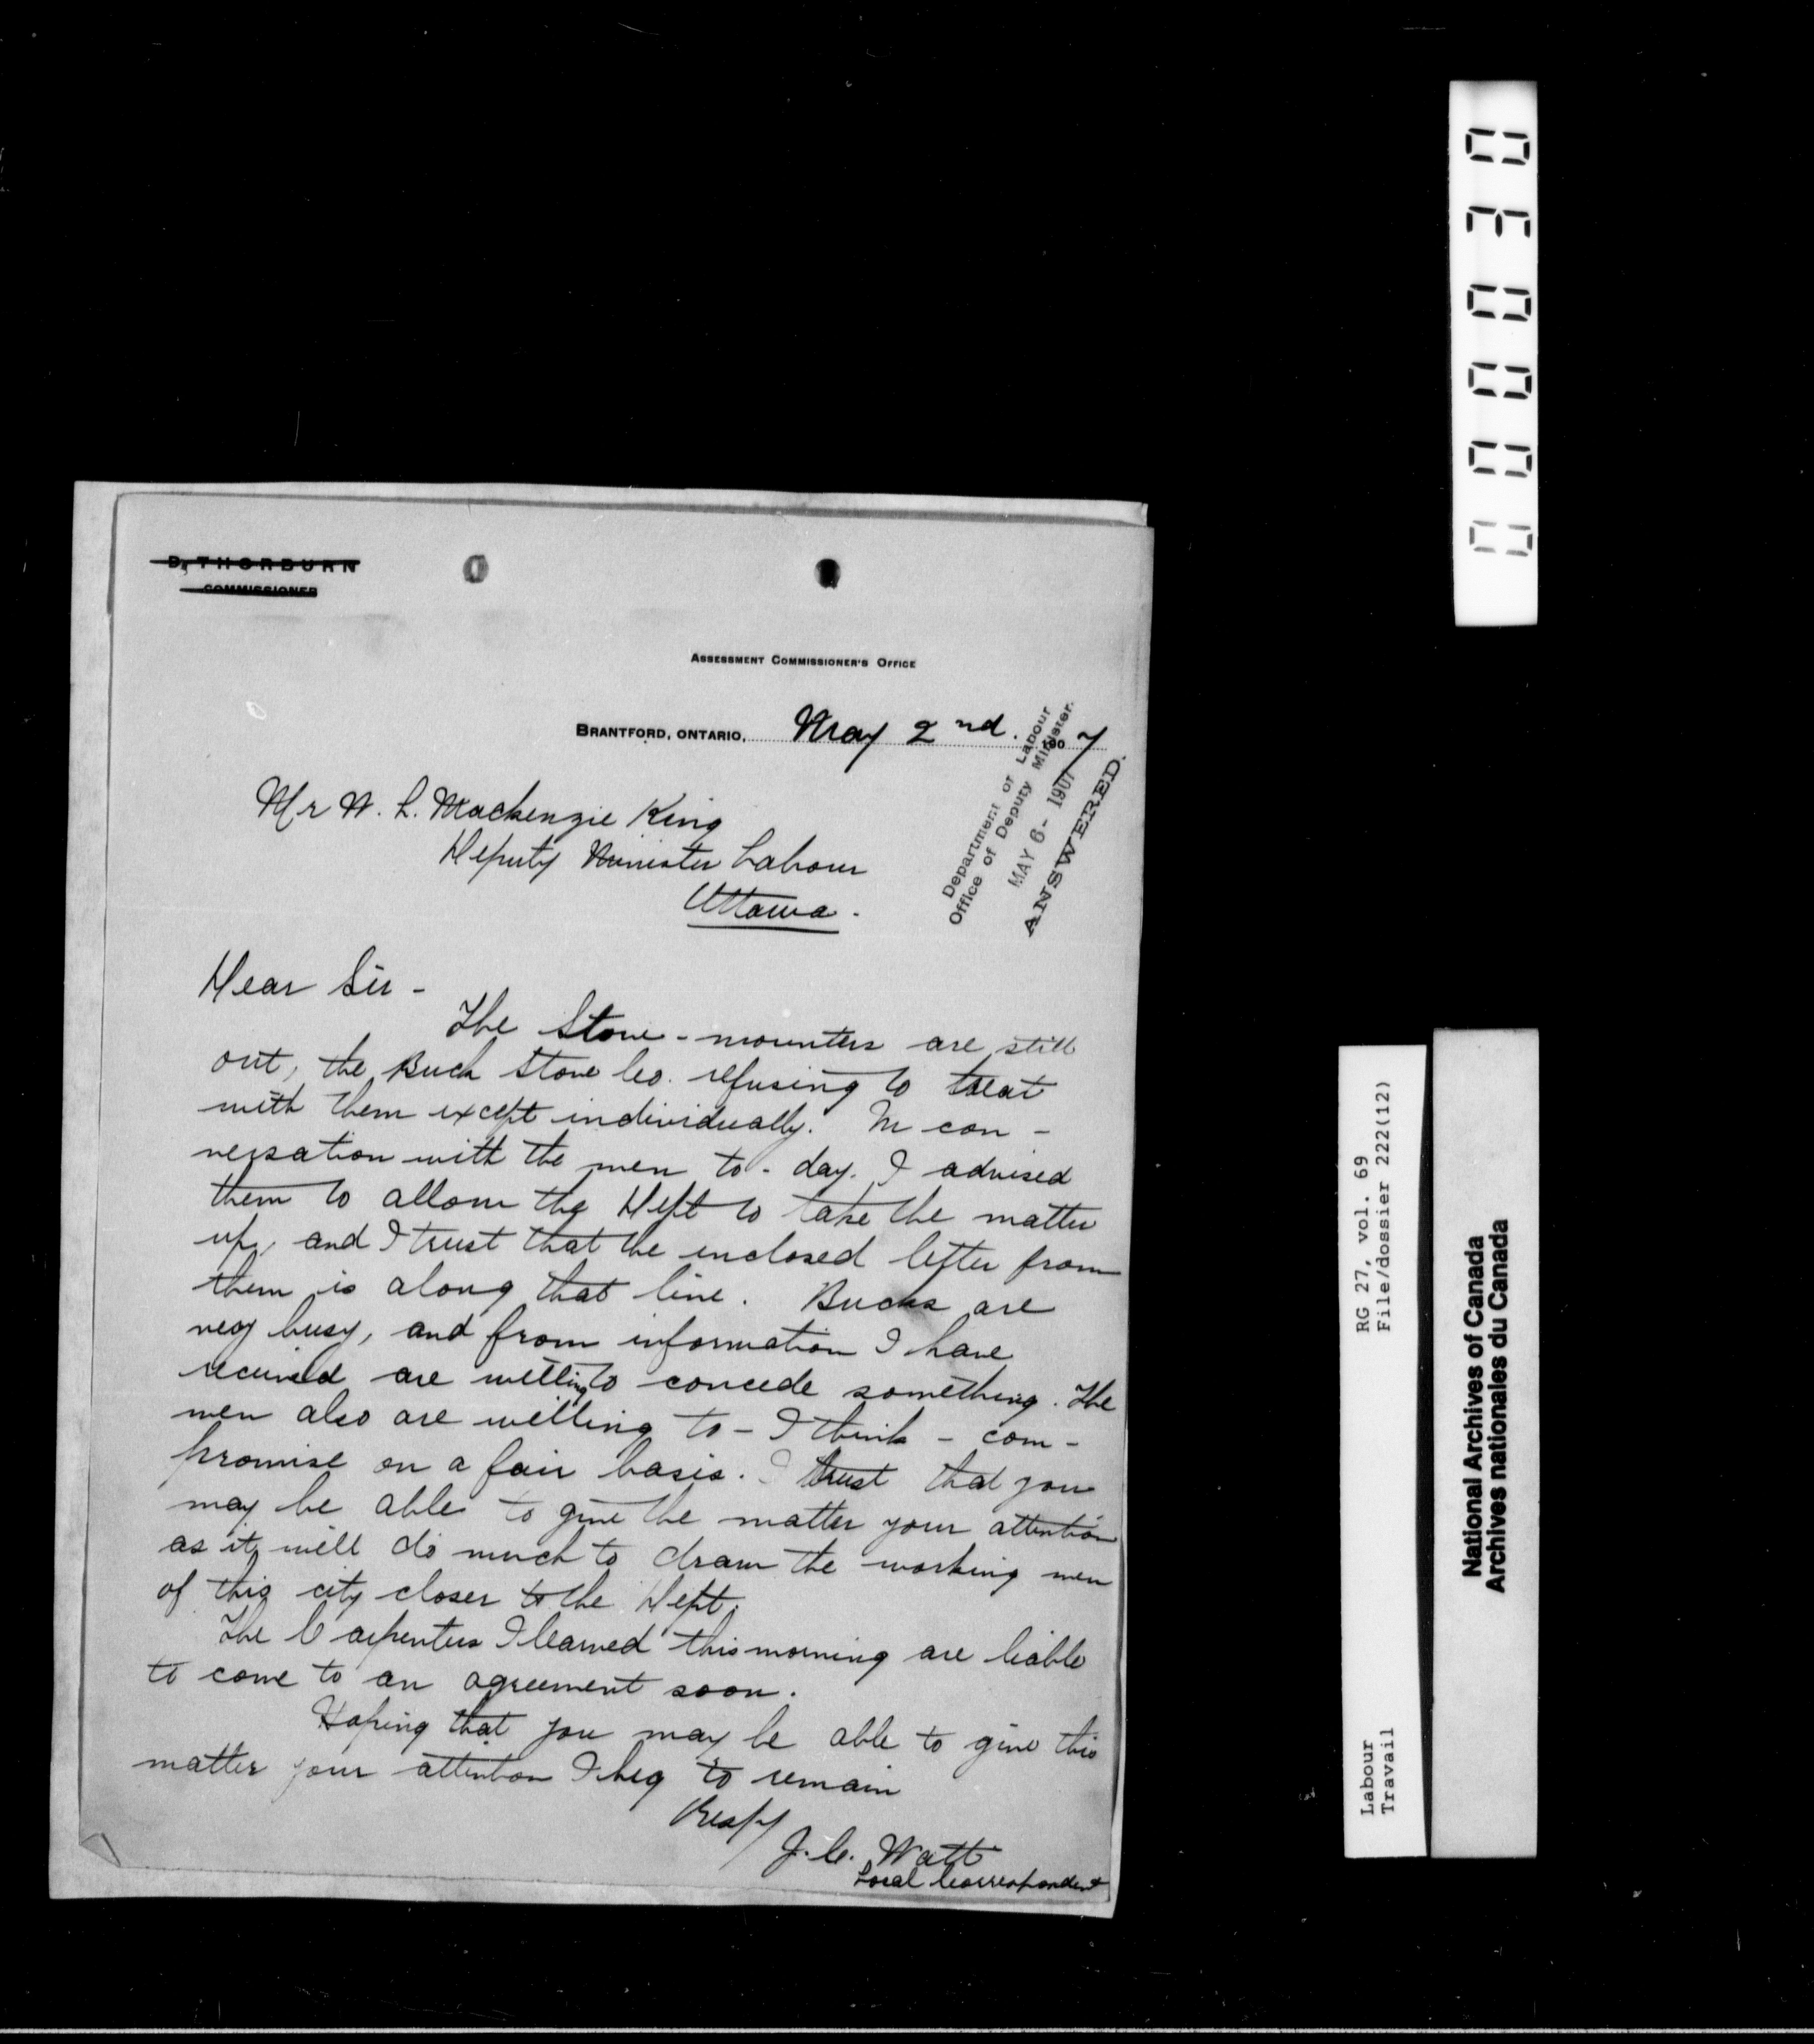 D. THORBURN
COMMISSIONER
ASSESSMENT COMMISSIONER'S OFFICE
BRANTFORD, ONTARIO, May 2nd. 1907
Department of Labour
Office of Deputy Minister.
MAY 6- 1907
ANSWERED.
Mr W. L. Mackenzie King
Deputy Minister Labour
Ottawa.
Dear Sir -
The Stove-mounters are still
out, the Buck Stove Co. refusing to treat
with them except individually. In con-
versation with the men to-day. I advised
them to allow the Dept to take the matter
up, and I trust that the enclosed letter from
them is along that line. Bucks are
very busy, and from information I have
received are willing to concede something. The
men also are willing to - I think - com-
promise on a fair basis. I trust that you
may be able to give the matter your attention
as it will do much to draw the working men
of this city closer to the Dept.
The Carpenters I learned this morning are liable
to come to an agreement soon.
Hoping that you may be able to give this
matter your attention I beg to remain
Respy
J. C. Watt
Local Correspondent
000030
RG 27, vol. 69
File/dossier 222(12)
Labour
Travail
National Archives of Canada
Archives nationales du Canada